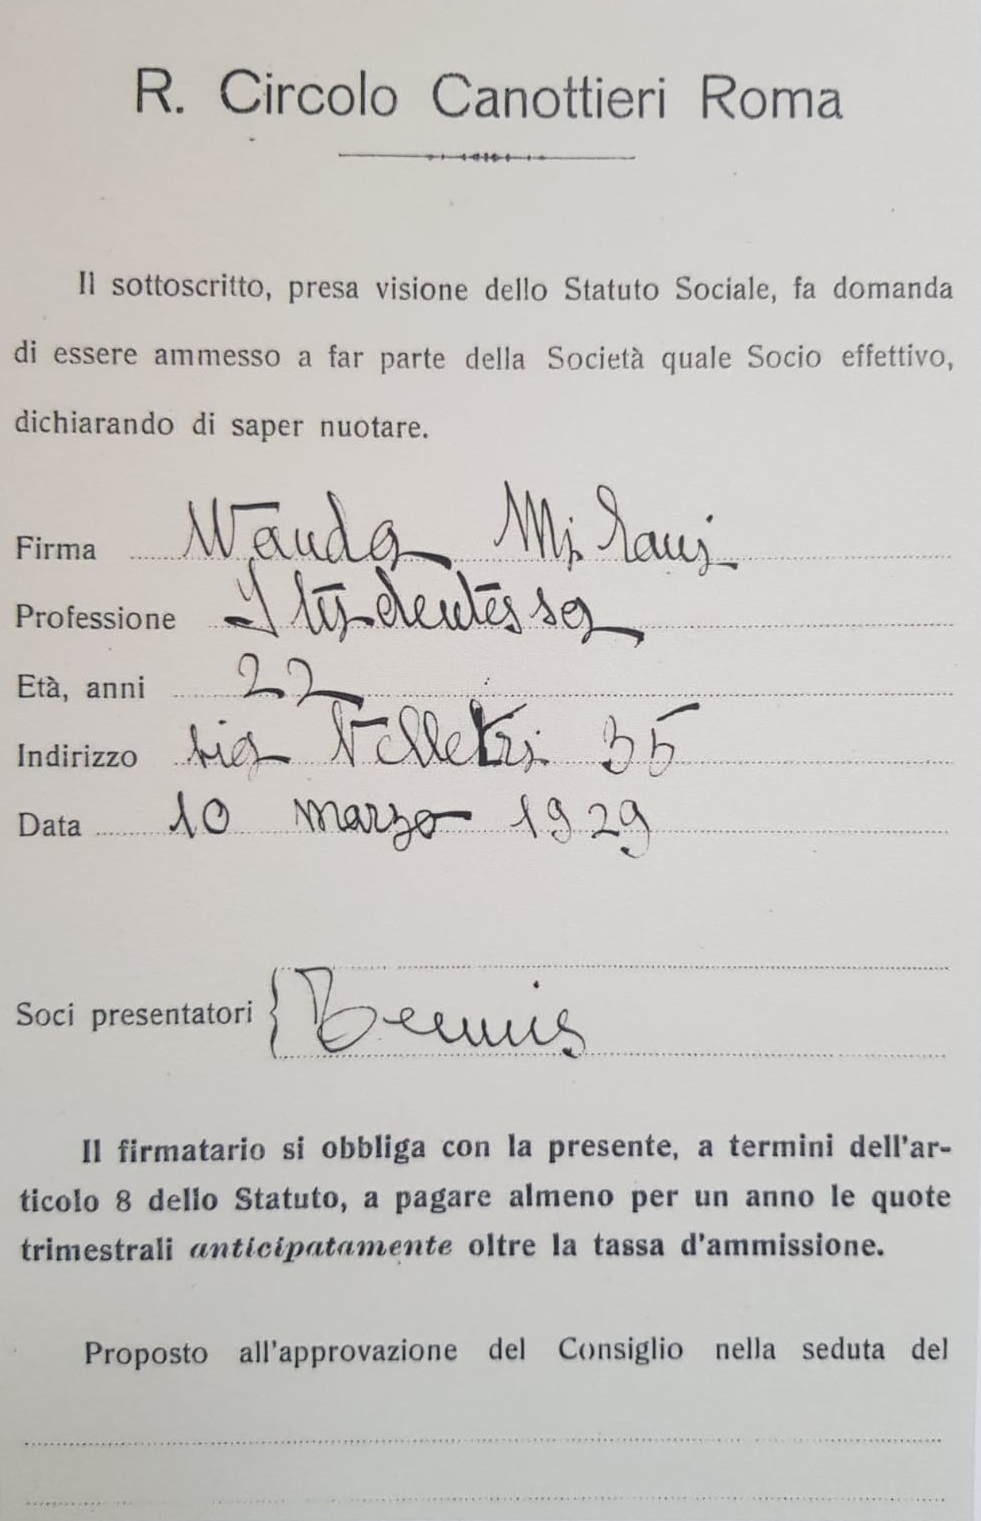 R. Circolo Canottieri Roma
Il sottoscritto, presa visione dello Statuto Sociale, fa domanda
di essere ammesso a far parte della Società quale Socio effettivo,
dichiarando di saper nuotare.
Firma Wanda Milani
Professione Studentessa
Età, anni 22
Indirizzo via Velletri 35
Data 10 marzo 1929
Soci presentatori
Il firmatario si obbliga con la presente, a termini dell'ar-
ticolo 8 dello Statuto, a pagare almeno per un anno le quote
trimestrali anticipatamente oltre la tassa d'ammissione.
Proposto all'approvazione del Consiglio nella seduta del